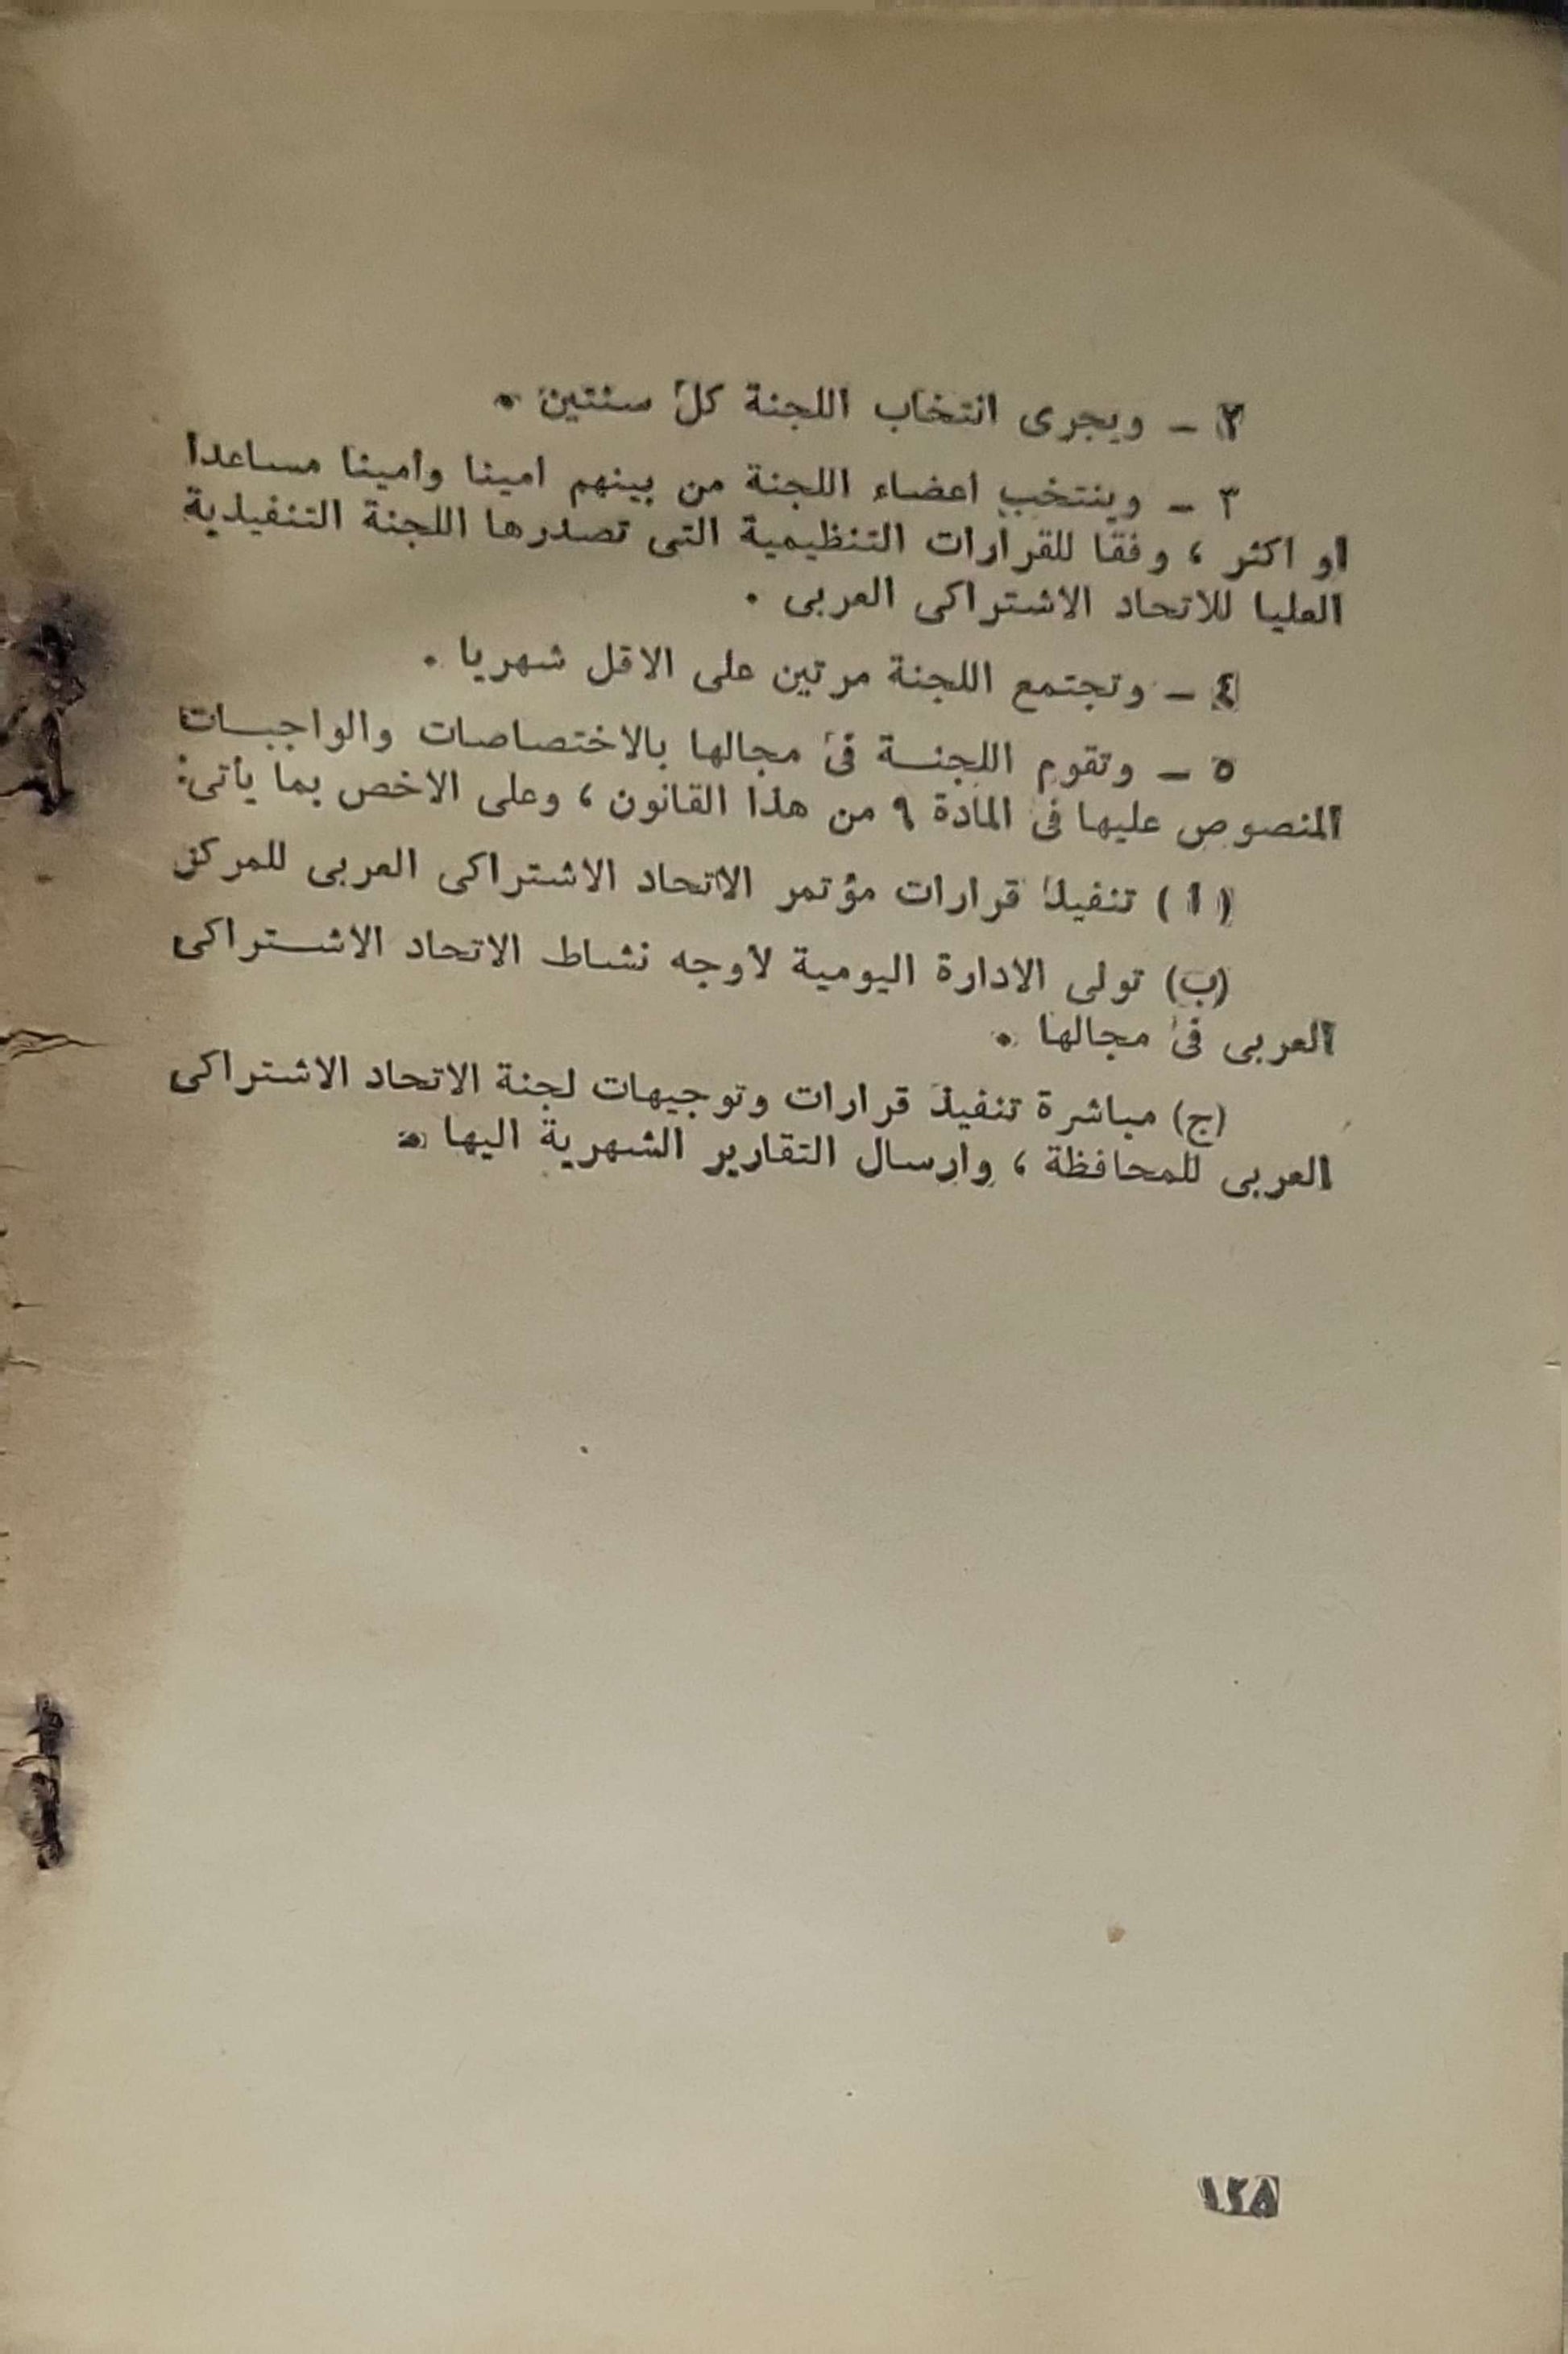 ٢ – ويجرى انتخاب اللجنة كل سنتين .
٣ – وينتخب اعضاء اللجنة من بينهم امينا وأمينا مساعدا
او اكثر ، وفقا للقرارات التنظيمية التى تصدرها اللجنة التنفيذية
العليا للاتحاد الاشتراكى العربى .
٤ – وتجتمع اللجنة مرتين على الاقل شهريا .
٥ – وتقوم اللجنــة فى مجالها بالاختصاصات والواجبــات
المنصوص عليها فى المادة ٩ من هذا القانون ، وعلى الاخص بما يأتى:
( ا ) تنفيذ قرارات مؤتمر الاتحاد الاشتراكى العربى للمركز
(ب) تولى الادارة اليومية لأوجه نشاط الاتحاد الاشــتراكى
العربى فى مجالها .
(ج) مباشرة تنفيذ قرارات وتوجيهات لجنة الاتحاد الاشتراكى
العربى للمحافظة ، وارسال التقارير الشهرية اليها .
١٢٨